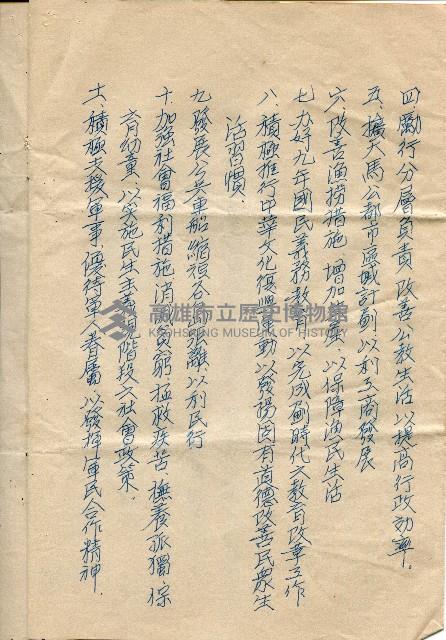 四、勵行分層負責、改善公教生活以提高行政効率。
五、擴大馬公都市區域計劃以利工商發展
六、改善漁撈措施、增加生產、以保障漁民生活
七、力好九年國民義務教育以完成劃時代之教育改革工作
八、積極推行中華文化復興運動以發揚固有道德改善民衆生
活習慣、
九、發展公共車船縮短公里距離以利民行
十、加強社會福利措施消滅貧窮、拯救疾苦、撫養孤獨、保
育幼童、以實施民生主義現階段之社會政策、
十一、積極支援軍事、優待軍人眷屬以發揮軍民合作精神、
高雄市立歷史博物館
KAOHSIUNG MUSEUM OF HISTORY